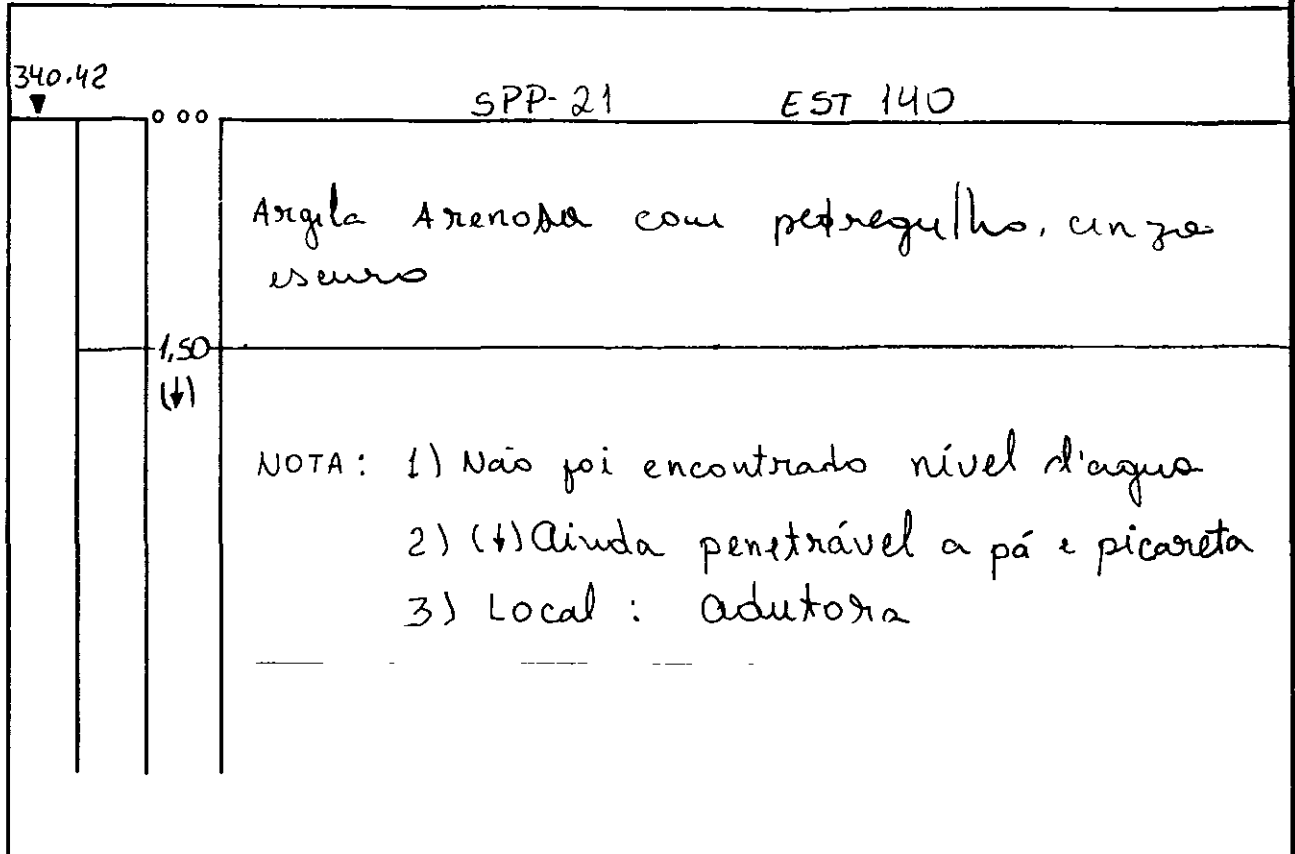 340.42
SPP-21 EST 140
0 00
Argila Arenosa com pedregulho, cinza
escuro
1,50
(↓)
NOTA: 1) Não foi encontrado nível d'agua
2) (↓) Ainda penetrável a pá e picareta
3) Local: adutora